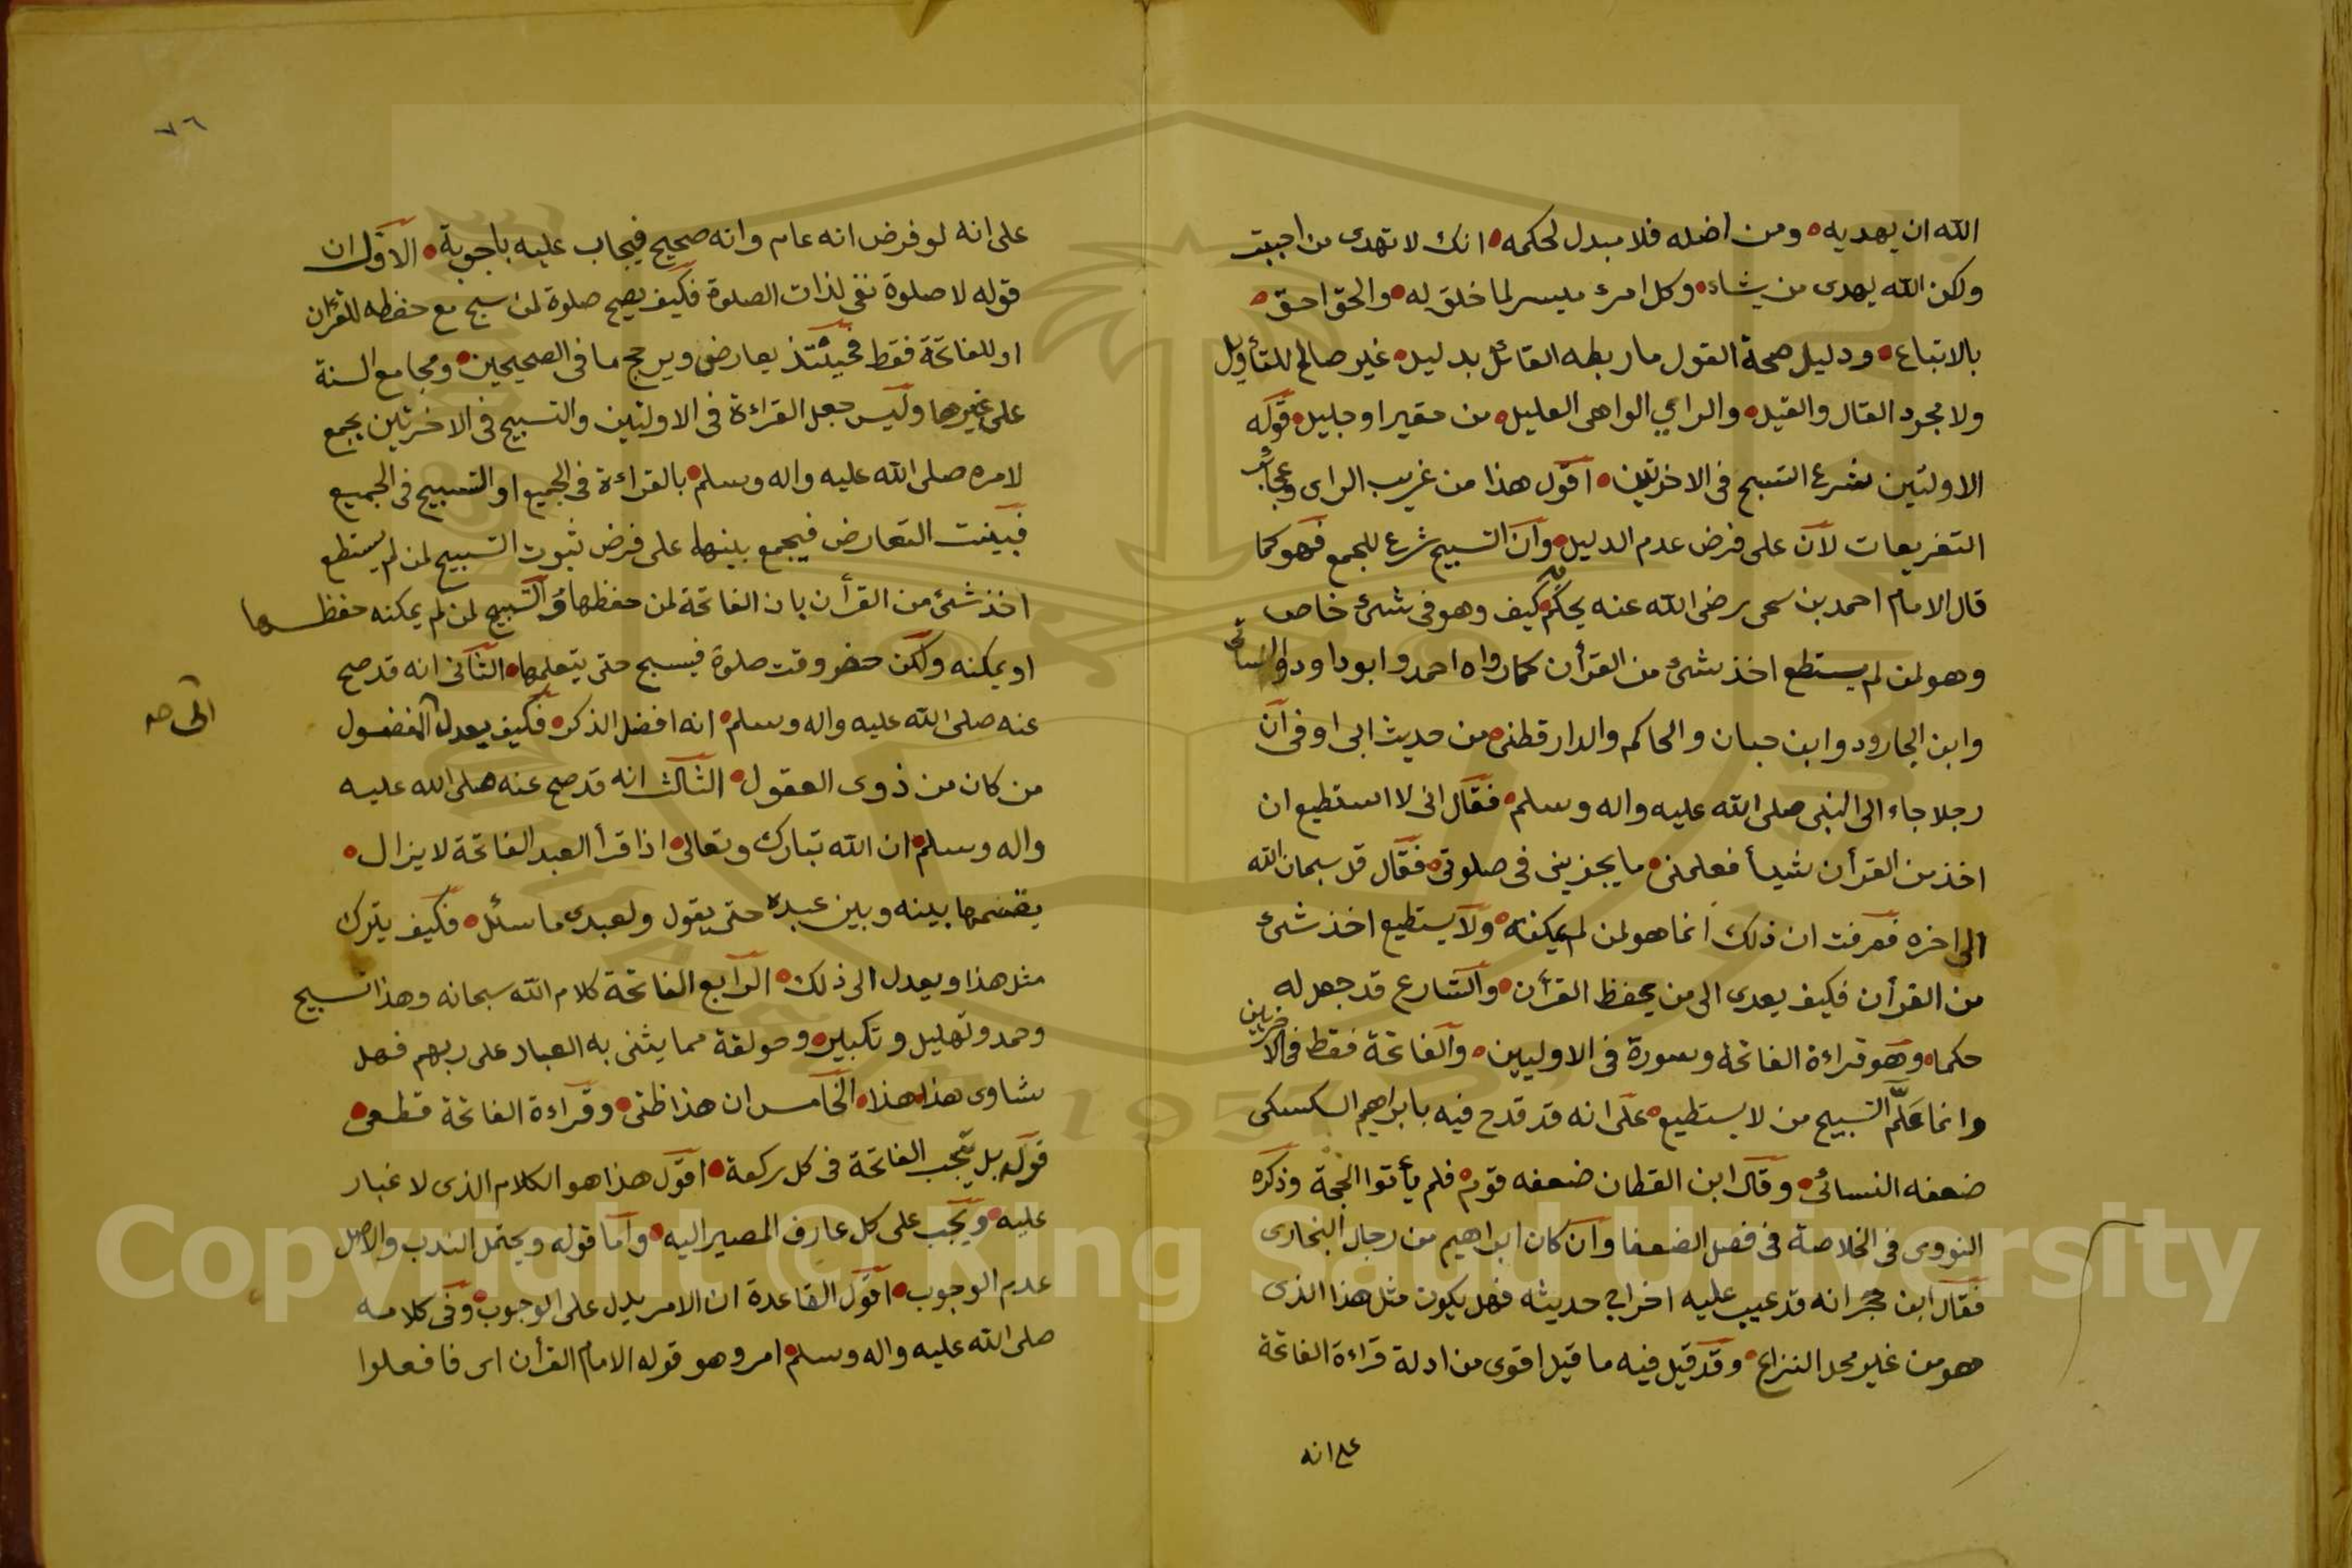 الله ان يهديه ومن اضله فلا مبدل لحكمه انك لا تهدى من احببت
ولكن الله يهدى من يشاء وكل امرء ميسر لما خلق له والحق احق
بالاتباع ودليل صحة القول ما ربطه القائل بدليل غير صالح للتأويل
ولا مجرد القال والقيل والراي الواهى العليل من حقير او جليل قوله
الاولتين شرع التسبيح فى الاخرتين اقول هذا من غريب الراى وعجائب
التفريعات لان على فرض عدم الدليل وان التسبيح شرع للجمع فهو كما
قال الامام احمد بن يحيى رضى الله عنه يحكم كيف وهو فى شئ خاص
وهو لمن لم يستطع اخذ شئ من القرأن كما رواه احمد وابو داود والنسائى
وابن الجارود وابن حبان والحاكم والدارقطنى من حديث ابى اوفى ان
رجلا جاء الى النبى صلى الله عليه واله وسلم فقال انى لا استطيع ان
اخذ من القرأن شيأ فعلمنى ما يجزينى فى صلوتى فقال قل سبحان الله
الى اخره فعرفت ان ذلك انما هو لمن لم يمكنه ولا يستطيع اخذ شئ
من القرأن فكيف يعدى الى من يحفظ القرأن والشارع قد جعل له
حكما وهو قراءة الفاتحة وسورة فى الاوليين والفاتحة فقط فى الاخريين
وانما علم التسبيح من لا يستطيع على انه قد قدح فيه بابراهيم السكسكى
ضعفه النسائى وقال ابن القطان ضعفه قوم فلم يأتوا الحجة وذكره
النووى فى الخلاصة فى فصل الضعفا وان كان ابراهيم من رجال البخارى
فقال ابن حجر انه قد عيب عليه اخراج حديثه فهل يكون مثل هذا الذى
هو من غير محل النزاع وقد قيل فيه ما قيل اقوى من ادلة قراءة الفاتحة
على انه
٧٦
على انه لو فرض انه عام وانه صحيح فيجاب عليه باجوبة الاول ان
قوله لا صلوة نفى لذات الصلوة فكيف يصح صلوة لمن سبح مع حفظه للقرأن
او للفاتحة فقط فحينئذ يعارض ويرجح ما فى الصحيحين ومجامع السنة
على غيرها وليس جعل القراءة فى الاولتين والتسبيح فى الاخرتين بجمع
لامره صلى الله عليه واله وسلم بالقراءة فى الجميع او التسبيح فى الجميع
فبينت التعارض فيجمع بينها على فرض ثبوت التسبيح لمن لم يستطع
اخذ شئ من القرأن بان الفاتحة لمن حفظها والتسبيح لمن لم يمكنه حفظها
او يمكنه ولكن حضر وقت صلوة فيسبح حتى يتعلمها الثانى انه قد صح
عنه صلى الله عليه واله وسلم انه افضل الذكر فكيف يعدل المفضول
الى صح
من كان من ذوى العقول الثالث انه قد صح عنه صلى الله عليه
واله وسلم ان الله تبارك وتعالى اذا قرأ العبد الفاتحة لا يزال
يقسمها بينه وبين عبده حتى يقول ولعبدى ما سئل فكيف يترك
مثل هذا ويعدل الى ذلك الرابع الفاتحة كلام الله سبحانه وهذا تسبيح
وحمد وتهليل وتكبير وحولقة مما يثنى به العباد على ربهم فهل
تساوى هذا هذا الخامس ان هذا ظنى وقراءة الفاتحة قطعى
قوله بل تجب الفاتحة فى كل ركعة اقول هذا هو الكلام الذى لا غبار
عليه ويجب على كل عارف المصير اليه واما قوله ويحتمل الندب والاصل
عدم الوجوب اقول القاعدة ان الامر يدل على الوجوب وفى كلامه
صلى الله عليه واله وسلم امر وهو قوله الا بام القرأن اى فافعلوا
Copyright © King Saud University
1957